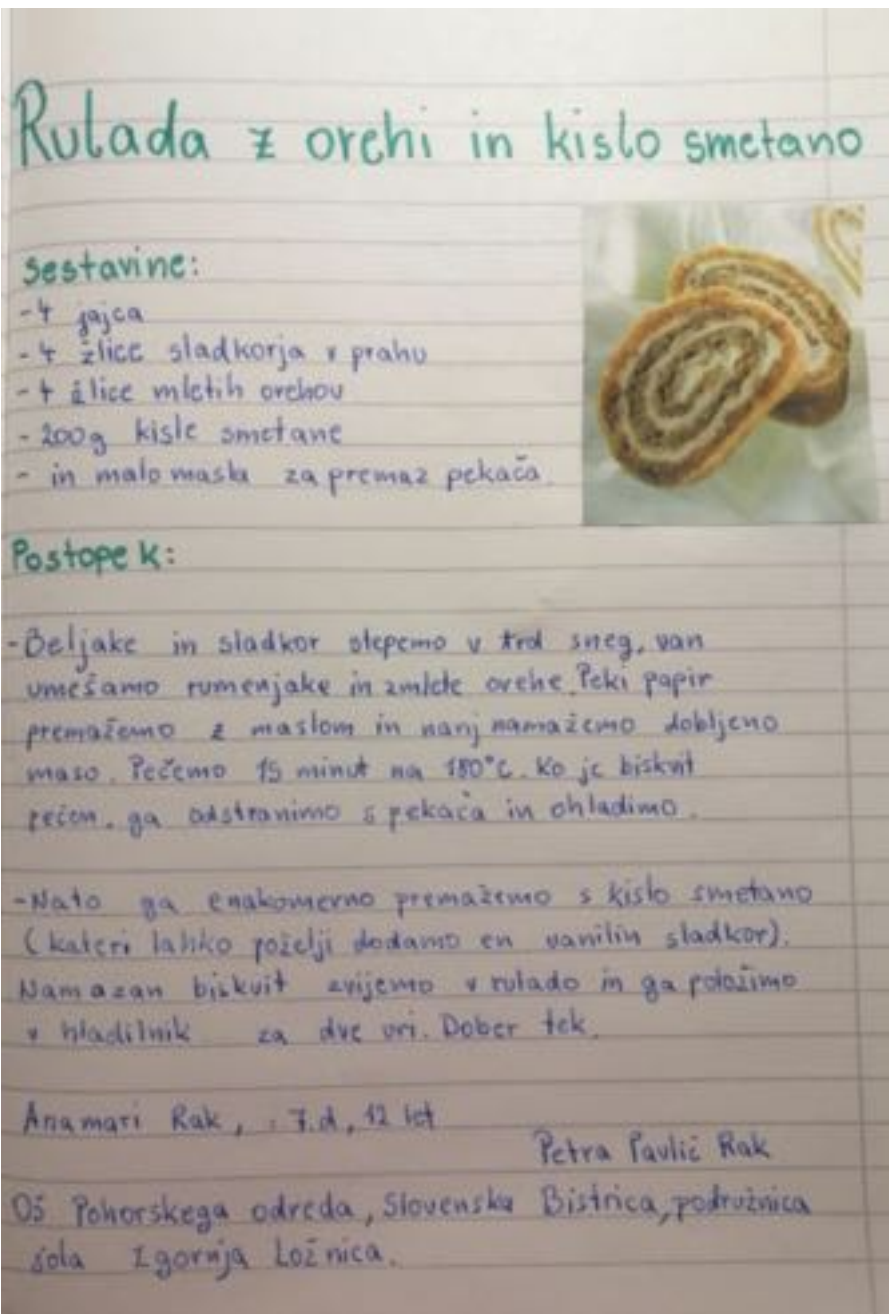 Rulada z orehi in kislo smetano
sestavine:
- 4 jajca
- 4 žlice sladkorja v prahu
- 4 žlice mletih orehov
- 200g kisle smetane
- in malo masla za premaz pekača.
Postopek:
- Beljake in sladkor stepemo v trd sneg, van
umešamo rumenjake in zmlete orehe. Peki papir
premažemo z maslom in nanj namažemo dobljeno
maso. Pečemo 15 minut na 180°C. Ko je biskvit
pečen, ga odstranimo s pekača in ohladimo.
- Nato ga enakomerno premažemo s kislo smetano
(kateri lahko poželji dodamo en vanilin sladkor).
Namazan biskvit zvijemo v rulado in ga položimo
v hladilnik za dve uri. Dober tek.
Anamari Rak, 7.d, 12 let
Petra Pavlič Rak
OŠ Pohorskega odreda, Slovenska Bistrica, podružnica
šola Zgornja Ložnica.